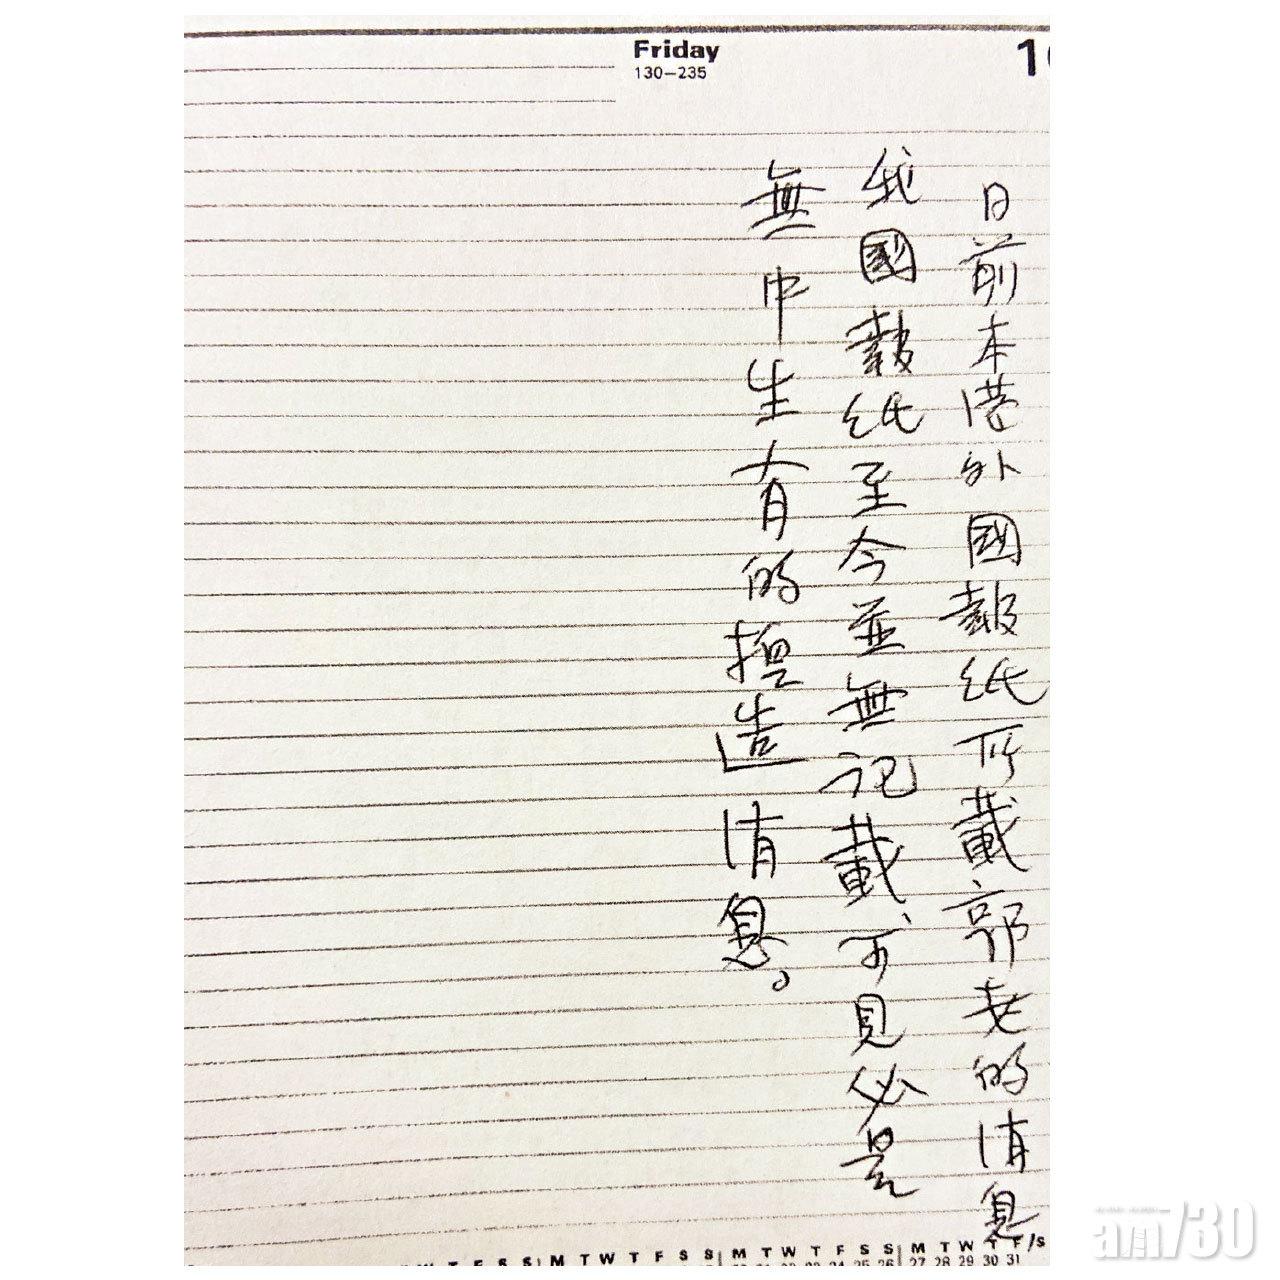 Friday
130-235
日前本港外國報紙所載郭老的消息
我國報紙至今並無記載，可見必是
無中生有的捏造消息。
S S M T W T F S S M T W T F S S M T W T F/S
27 28 29 30 31
am730